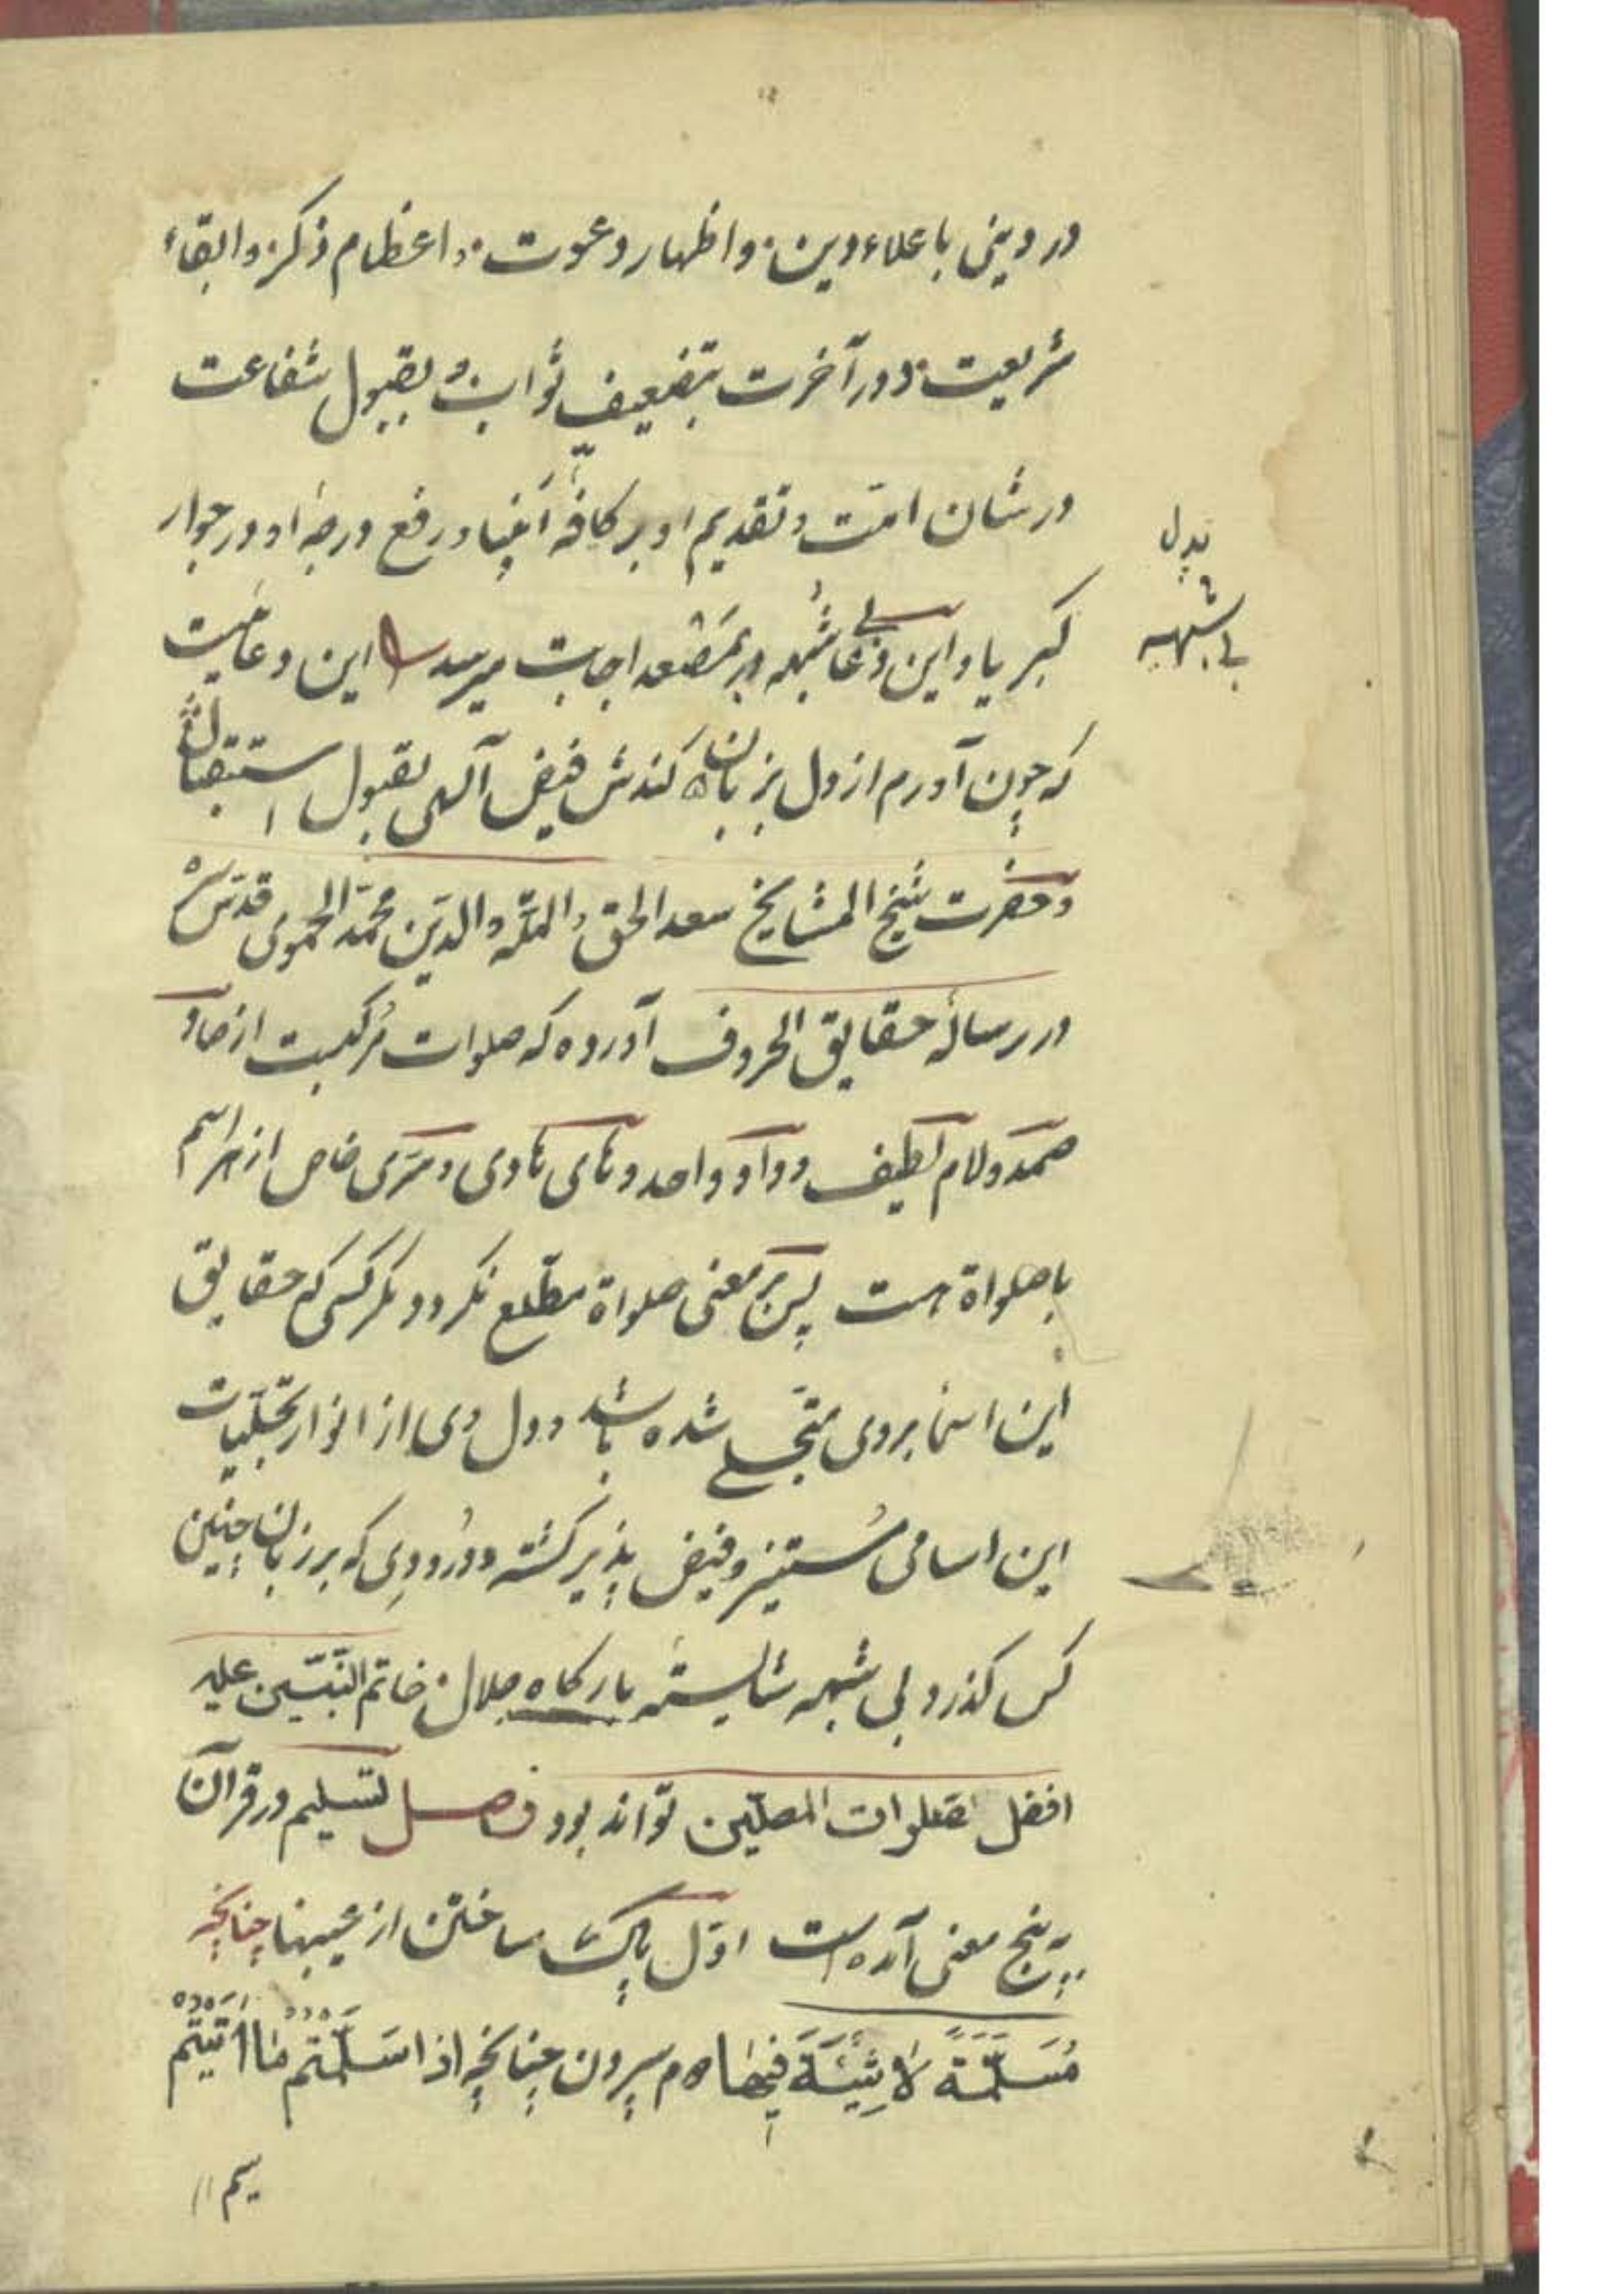 در دینی باعلاء دین و اظهار دعوت و اعظام ذکر و ابقاء
شریعت و در آخرت بتضعیف ثواب و بقبول شفاعت
در شان امّت و تقدیم او بر کافّه انبیا و رفع درجهٔ او در جوار
کبریا و این دعا بی شبهه در مصعد اجابت میرسد این دعائیست
بدل
بی شبهه
که چون آورم از دل بزبان کندش فیض آلهی بقبول استقبال
و حضرت شیخ المشایخ سعد الحق و الملّه و الدین محمّد الحموی قدّس سره
در رسالهٔ حقایق الحروف آورده که صلوات مُرکبست از صاد
صمد و لام لطیف و واو واحد و های هادی و سرّی خاص از هر اسم
با صلواة هست پس بر معنی صلواة مطّلع نکردد مکر کسی که حقایق
این اسما بر وی متجلی شده باشد و دل وی از انوار تجلّیات
این اسامی مُستنیر و فیض پذیر کشته و دُرودی که بر زبان چنین
کس کذرد بی شبهه شایسته بارکاه جلال خاتم النّبیّین علیه
افضل صلوات المصلّین تواند بود فصل تسلیم در قرآن
بر پنج معنی آمده است اوّل پاک ساختن از عیبها چنانچه
مُسَلَّمَةٌ لَا شِیَةَ فِیهَا دوم سپردن چنانچه اذا سَلَّمْتُم مَا اٰتَیْتُم
سیم